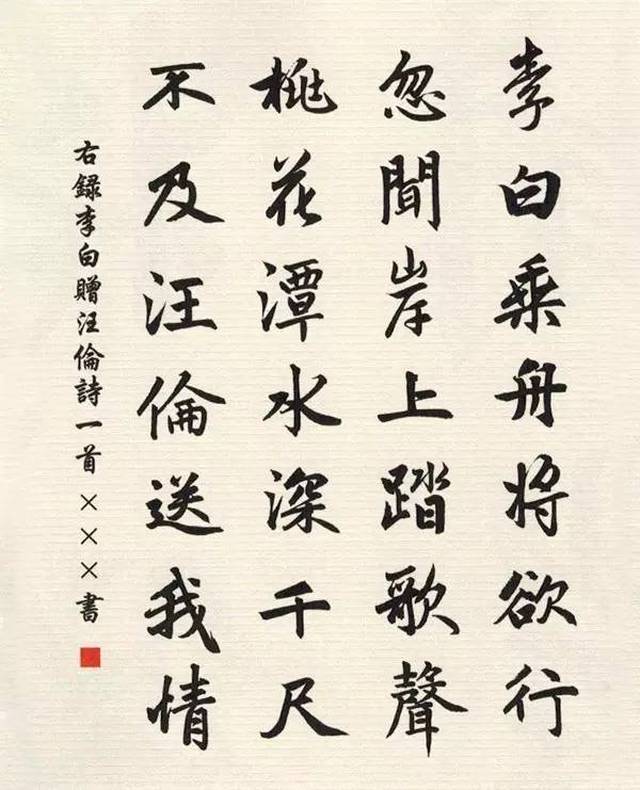 李白乘舟将欲行
忽聞岸上踏歌聲
桃花潭水深千尺
不及汪倫送我情
右録李白贈汪倫詩一首×××書